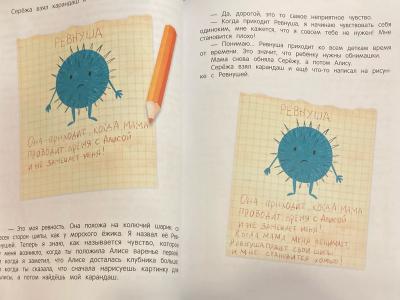 Серёжа взял карандаш и
РЕВНУША
Она приходит, когда мама
проводит время с Алисой
и не замечает меня!
— Это моя ревность. Она похожа на колючий шарик, с
всех сторон шипы, как у морского ёжика. Я назвал её Рев-
нушей. Теперь я знаю, как называется чувство, которое
у меня возникло, когда ты положила Алисе варенье первой,
и когда я заметил, что Алисе досталось клубники больше,
и когда ты сказала, что сначала нарисуешь картинку для
Алисы, а потом найдёшь мой карандаш.
— Да, дорогой, это то самое неприятное чувство.
— Когда приходит Ревнуша, я начинаю чувствовать себя
одиноким, мне кажется, что я совсем тебе не нужен! Мне
становится плохо!
— Понимаю... Ревнуша приходит ко всем деткам время
от времени. Это значит, что ребёнку нужны обнимашки.
Мама снова обняла Серёжу, а потом Алису.
Серёжа взял карандаш и ещё что-то написал на рисун-
ке с Ревнушей.
РЕВНУША
Она приходит, когда мама
проводит время с Алисой
и не замечает меня!
Когда мама меня обнимает,
Ревнуша прячет свои шипы
и мне становится хорошо!